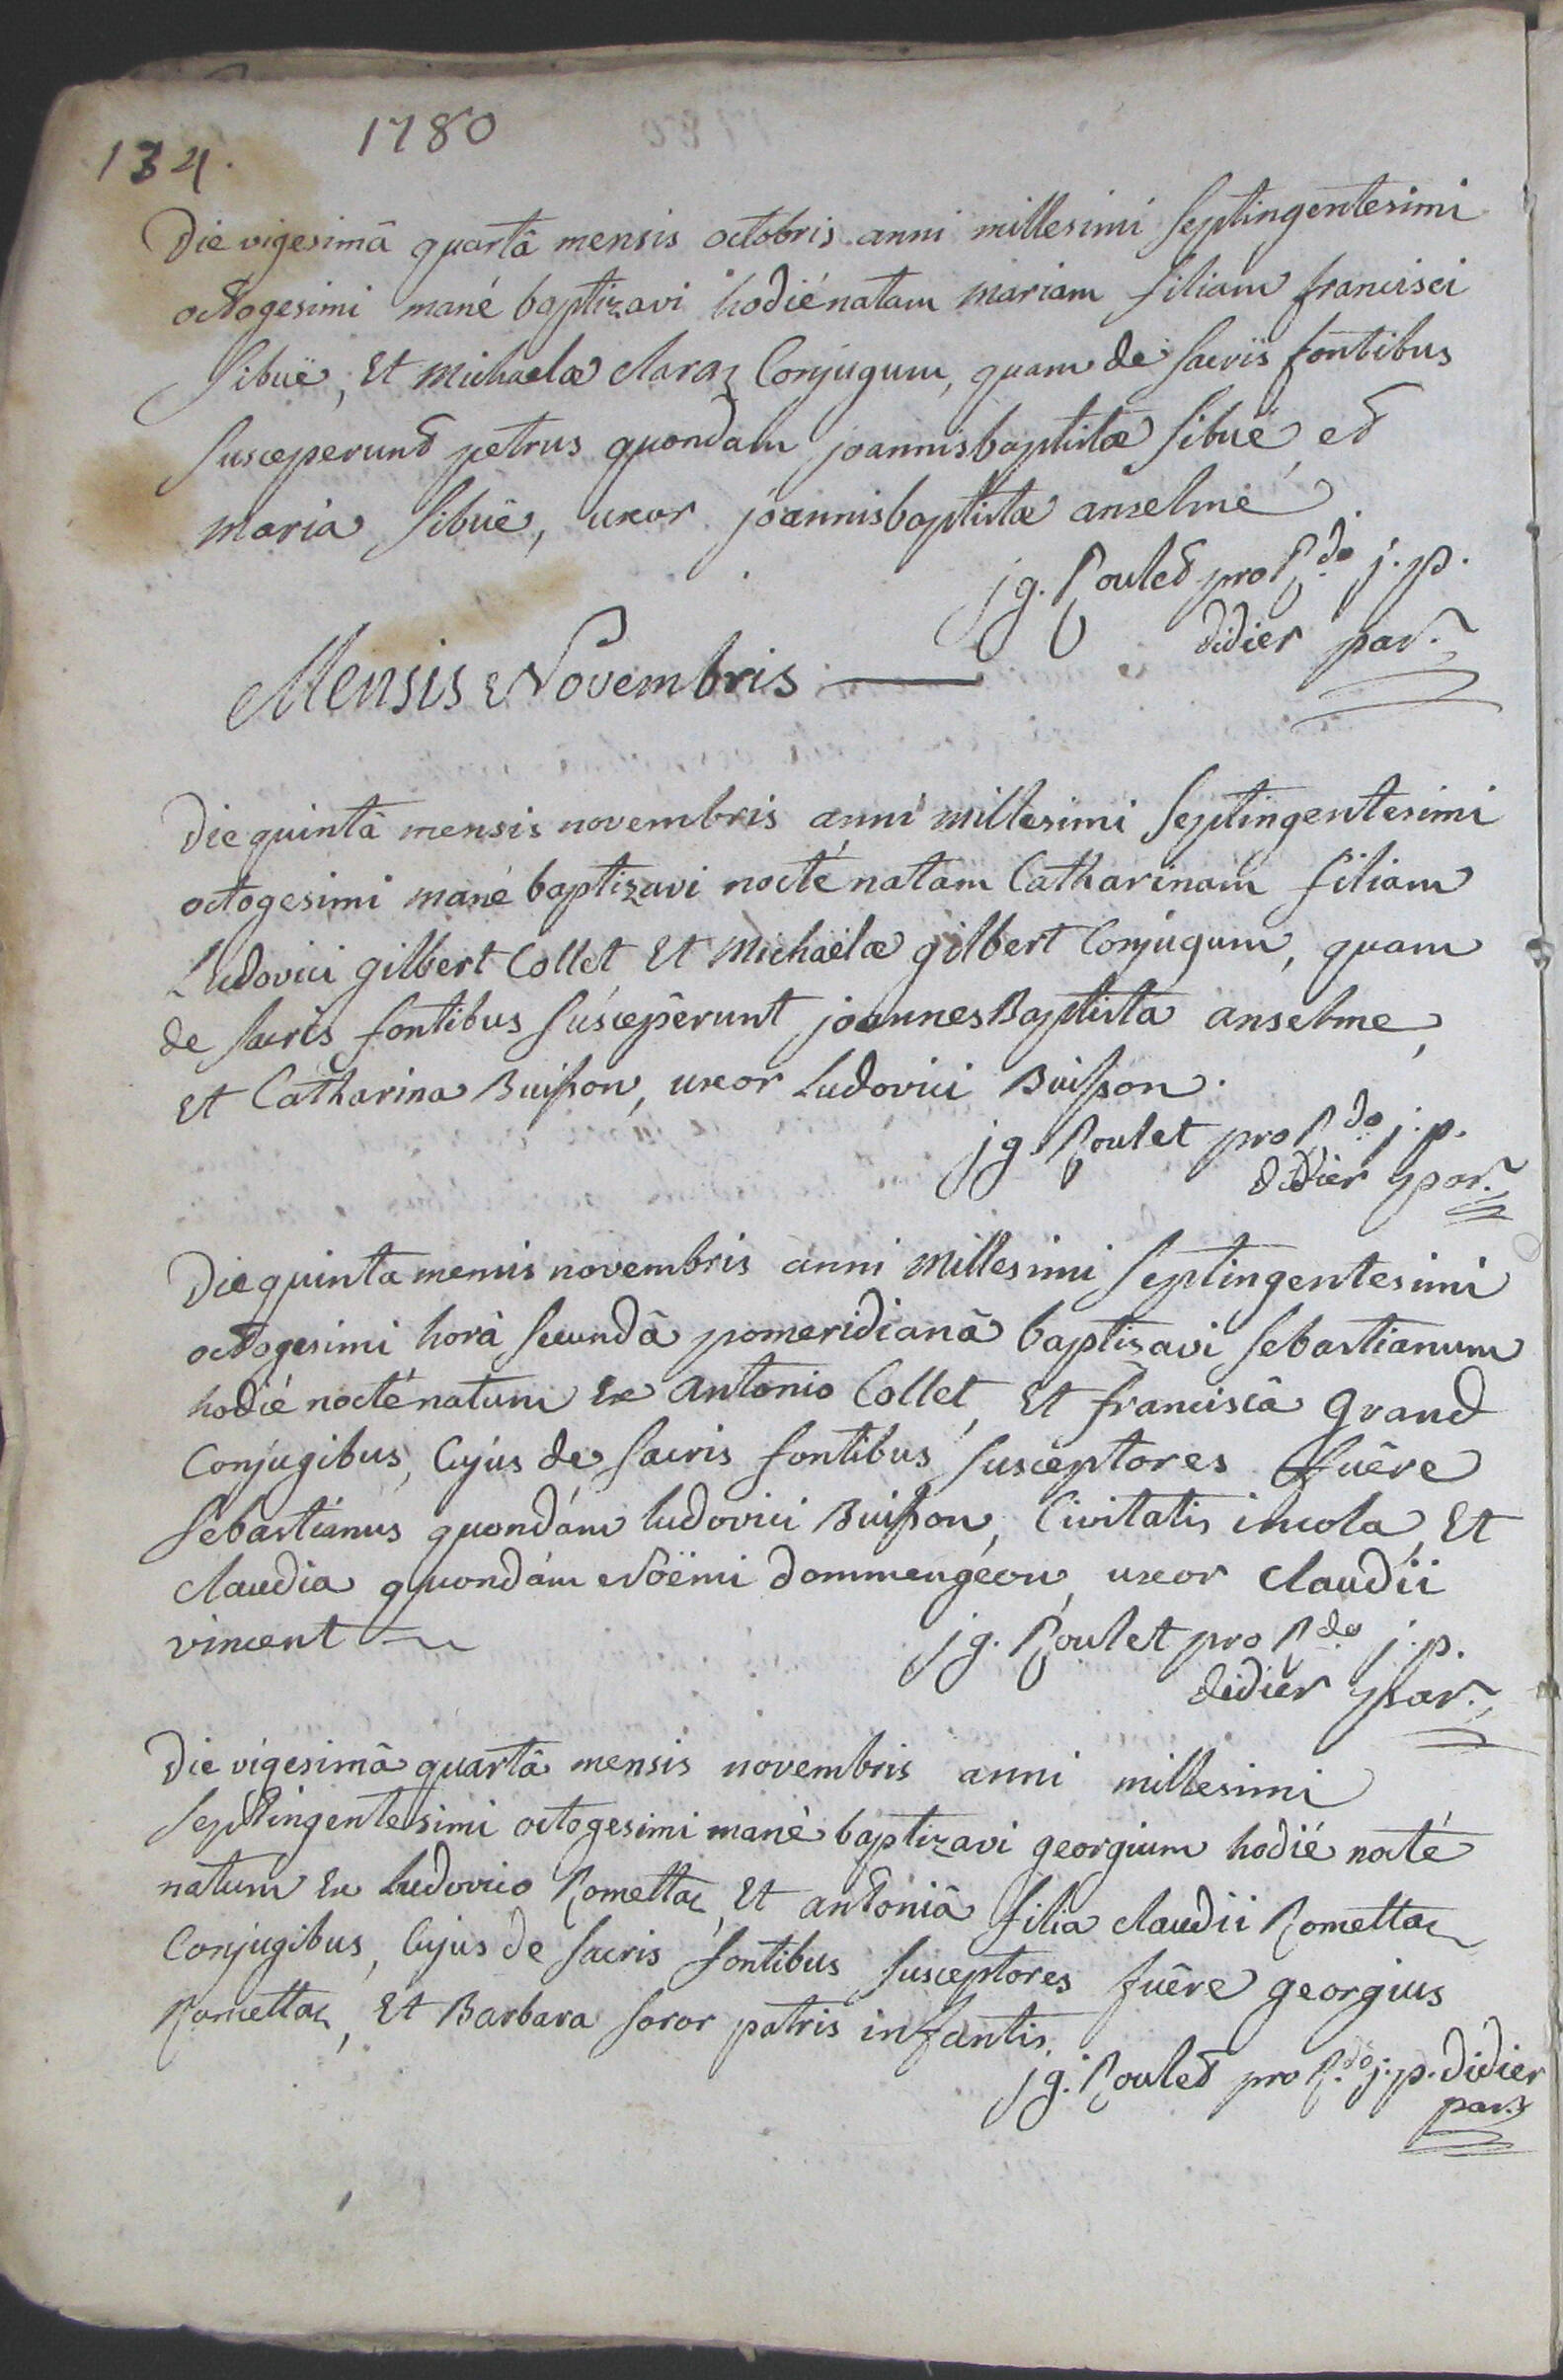 134.
1780
Die vigesimâ quartâ mensis octobris anni millesimi septingentesimi
octogesimi mané baptizavi hodié natam mariam filiam francisci
Sibuë, Et Michaelæ claraz Conjugum, quam de sacris fontibus
susceperunt petrus quondam joannisbaptistæ Sibué, et
maria Sibuë, uxor joannisbaptistæ anselme
jg. Roulet pro R.do j. p.
didier par.
Mensis Novembris
Die quintâ mensis novembris anni millesimi septingentesimi
octogesimi mané baptizavi nocté natam Catharinam filiam
Ludovici gilbert Collet Et Michaëlæ gilbert Conjugum, quam
de sacris fontibus suscepêrunt joannes Baptista anselme,
Et Catharina Buisson, uxor Ludovici Buisson.
jg. Roulet pro R.do j. p.
didier par.
Die quinta mensis novembris anni millesimi septingentesimi
octogesimi horâ secundâ pomeridianâ baptizavi sebastianum
hodié nocté natum Ex antonio Collet, Et franciscâ grand
Conjugibus, Cujus de sacris fontibus susceptores fuêre
sebastianus quondám ludovici Buisson, Civitatis incola, Et
claudia quondám Noëmi dommengeon, uxor claudii
vincent
jg. Roulet pro R.do j. p.
didier par.
Die vigesimâ quartâ mensis novembris anni millesimi
septingentesimi octogesimi mané baptizavi georgium hodié nocté
natum Ex Ludovico Rometlaz, Et antoniâ filia claudii Rometlaz
Conjugibus, Cujus de sacris fontibus susceptores fuêre georgius
Rometlaz, Et Barbara soror patris infantis.
jg. Roulet pro R.do j. p. didier
par.